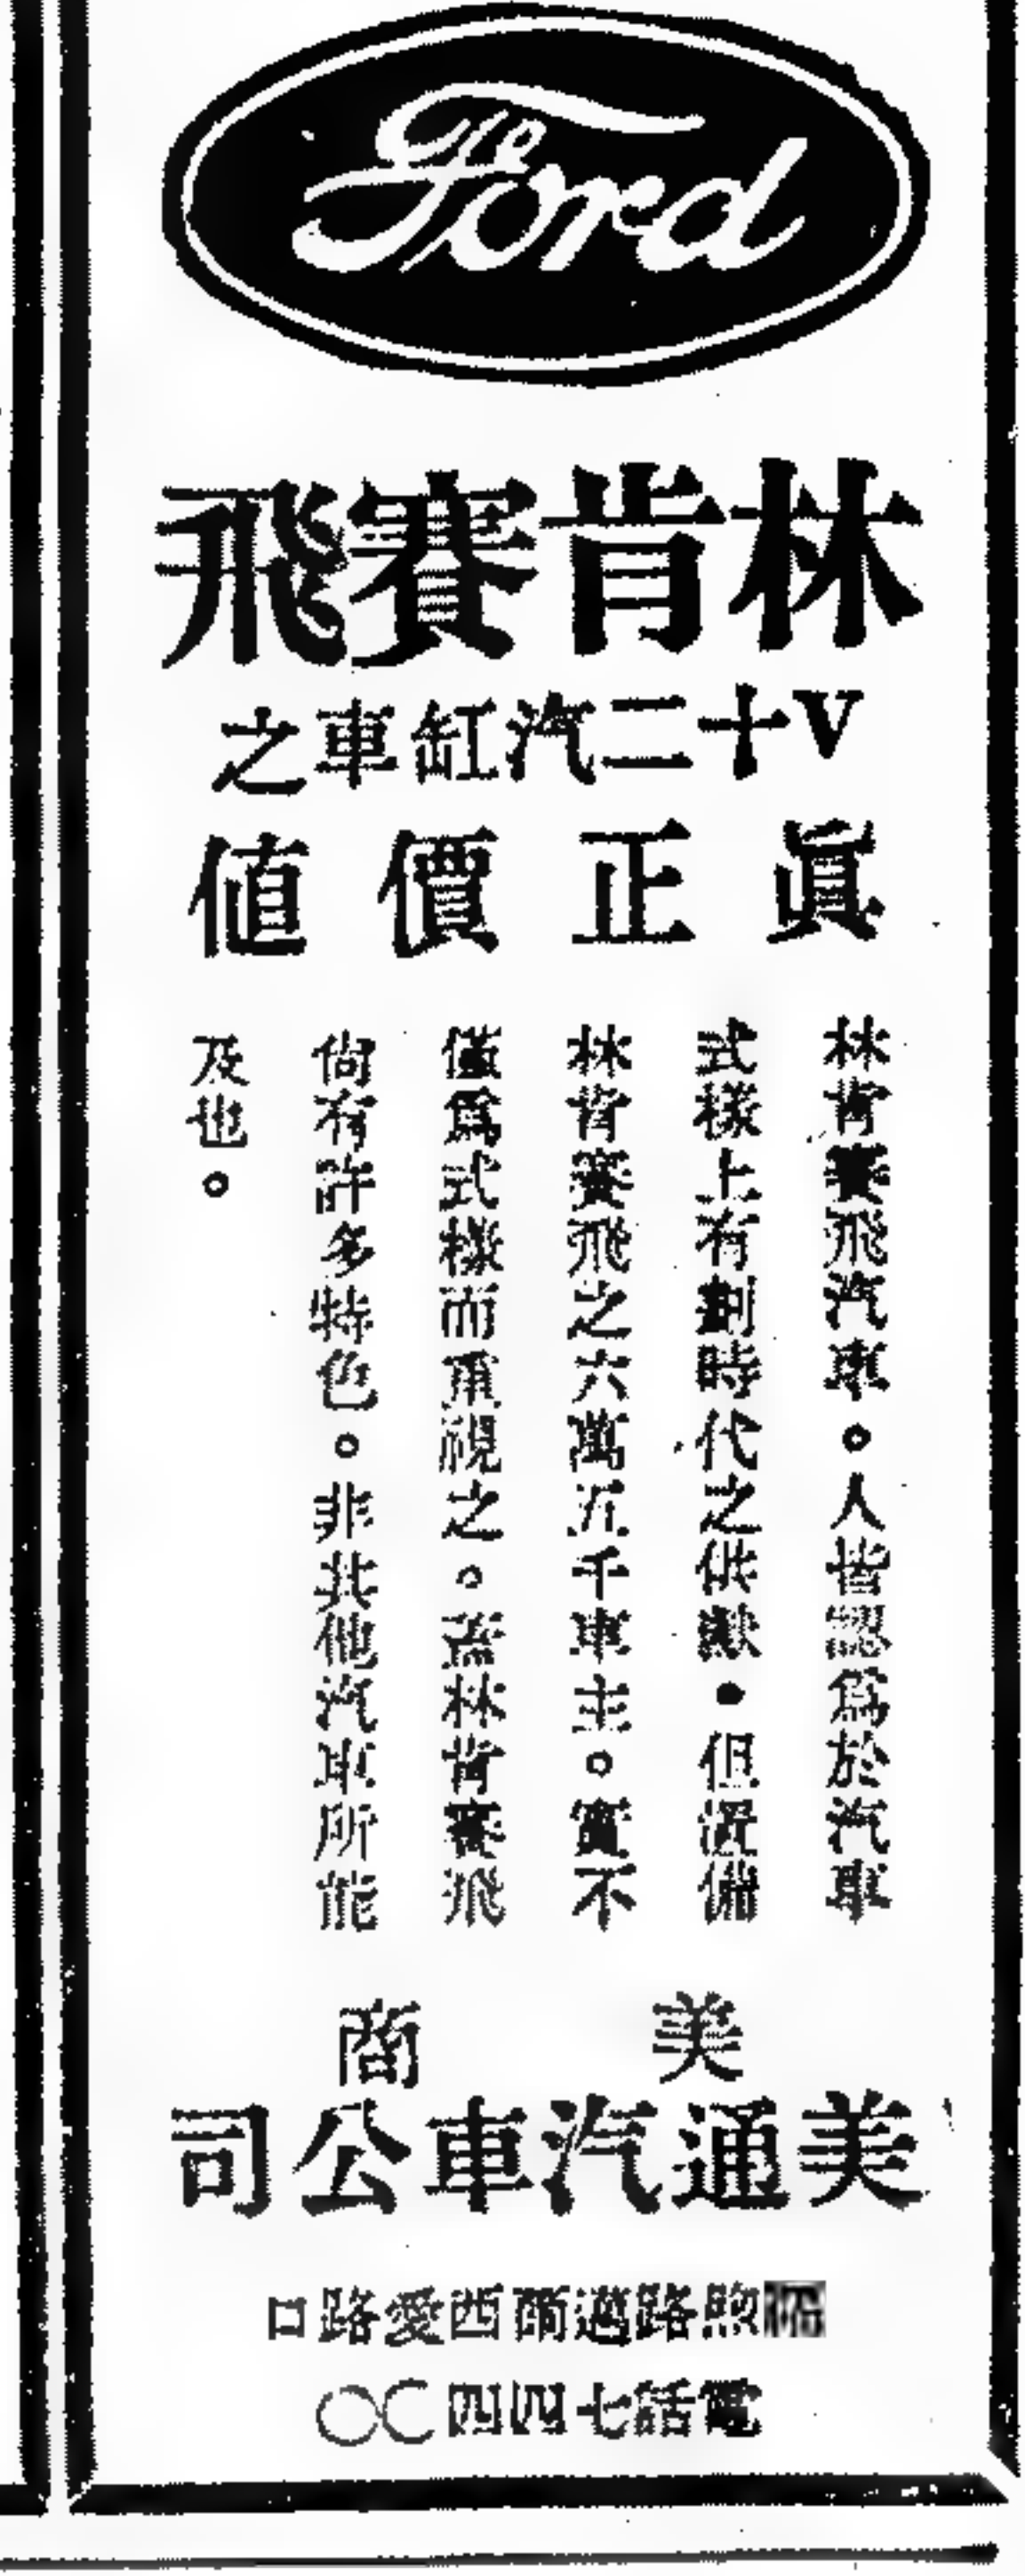 Ford
林肯賽飛
V十二汽缸車之
眞正價値
林肯賽飛汽車。人皆認爲於汽車
式樣上有劃時代之供獻・但備
林肯賽飛之六萬五千車主。實不
僅爲式樣而重視之。蓋林肯賽飛
尙有許多特色。非其他汽車所能
及也。
美商
美通汽車公司
福煦路邁爾西愛路口
電話七四四〇〇